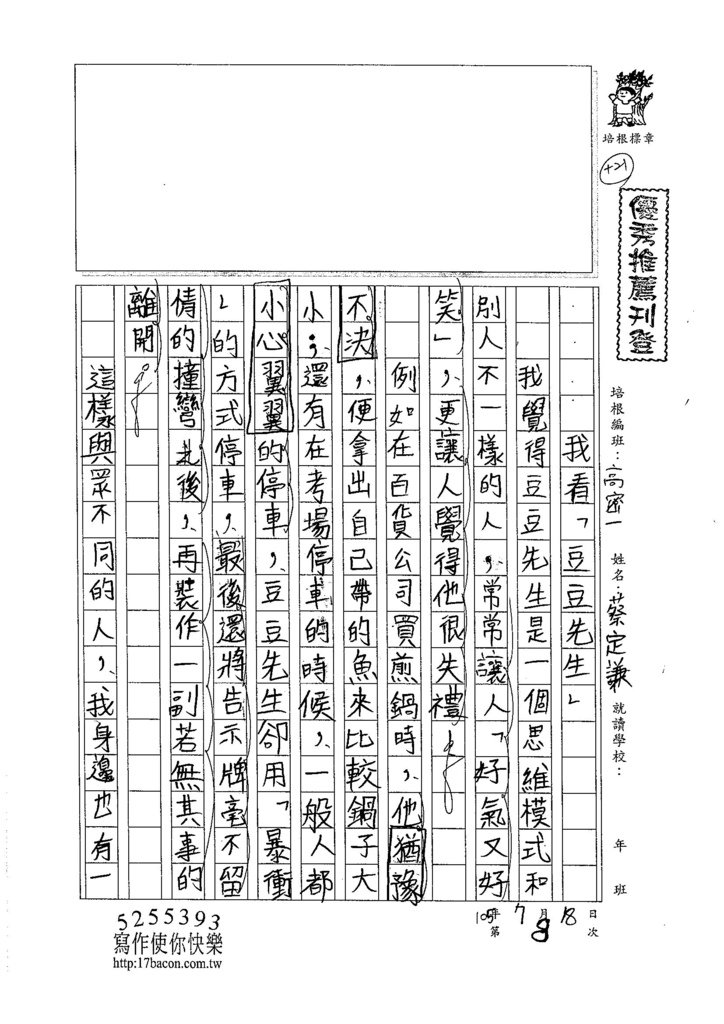 培根標章
+21
優秀推薦刊登
培根編班：高密一
姓名：蔡定謙
就讀學校：
年
班
105年7月18日
第8次
我看「豆豆先生」
我覺得豆豆先生是一個思維模式和
別人不一樣的人，常常讓人「好氣又好
笑」，更讓人覺得他很失禮。
例如在百貨公司買煎鍋時，他猶豫
不決，便拿出自己帶的魚來比較鍋子大
小；還有在考場停車的時候，一般人都
小心翼翼的停車，豆豆先生卻用「暴衝
」的方式停車，最後還將告示牌毫不留
情的撞彎，之後，再裝作一副若無其事的
離開。
這樣與眾不同的人，我身邊也有一
5255393
寫作使你快樂
http:17bacon.com.tw